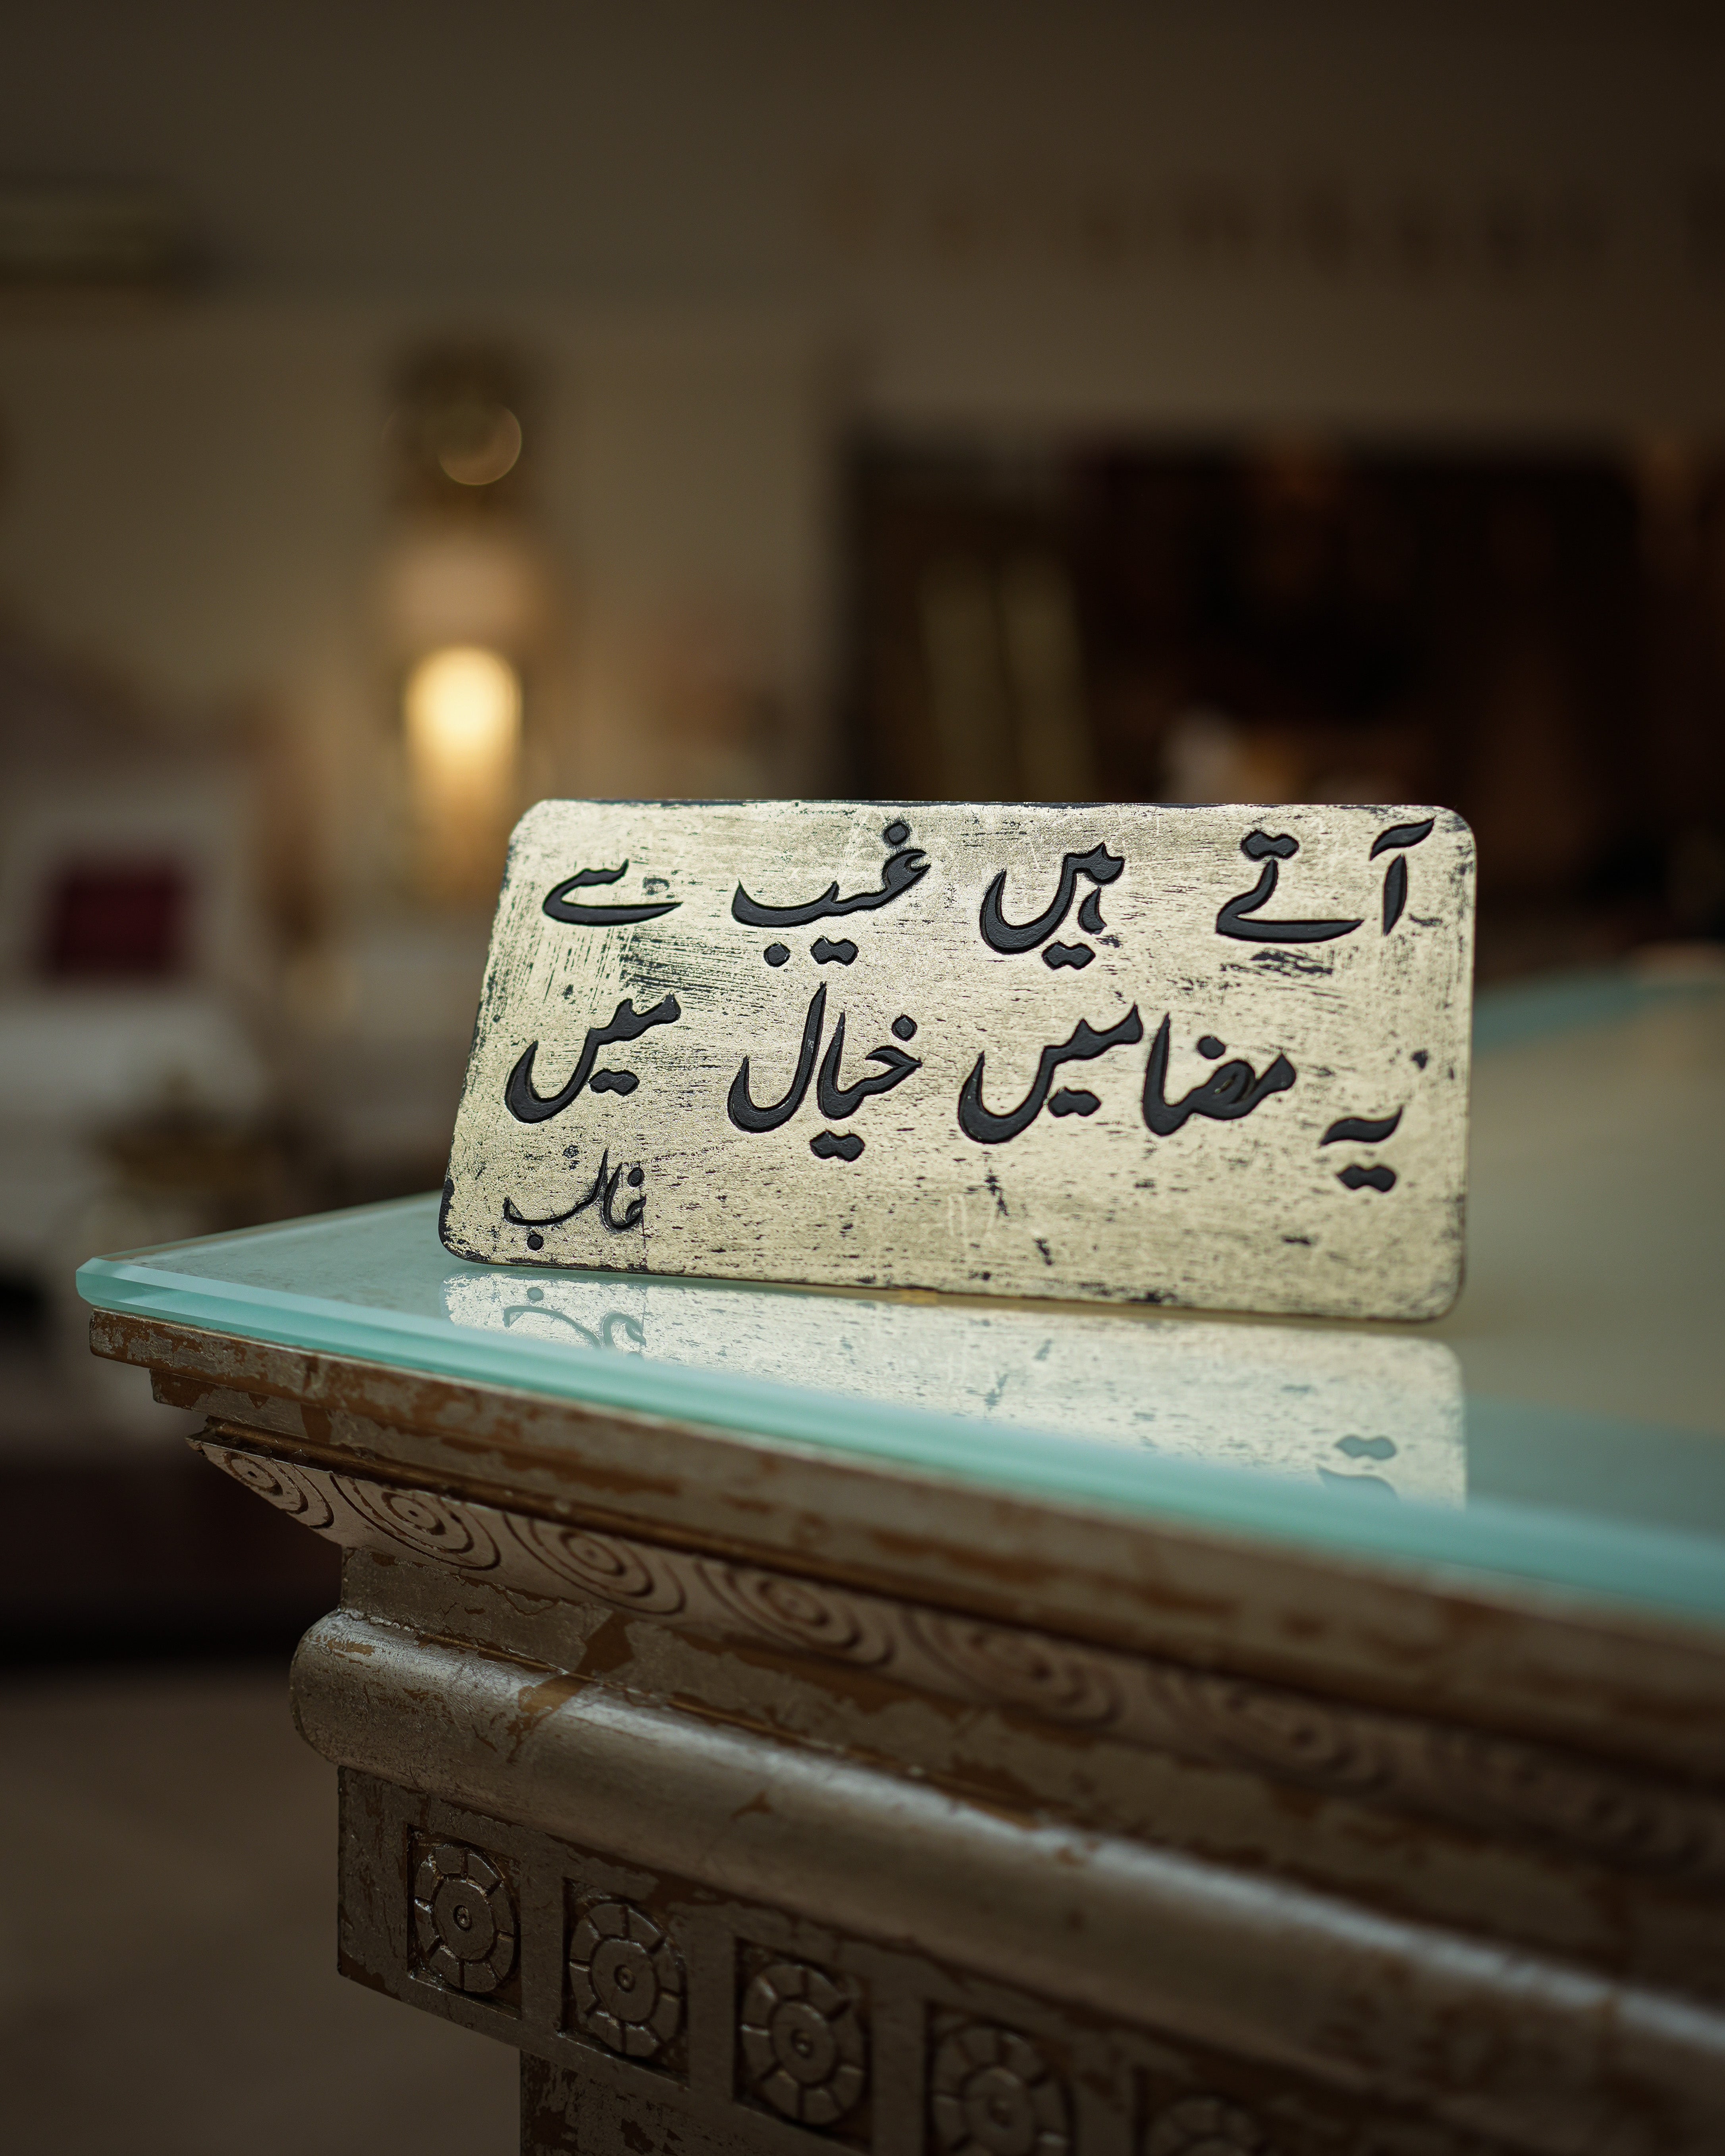 آتے ہیں غیب سے
یہ مضامیں خیال میں
غالب